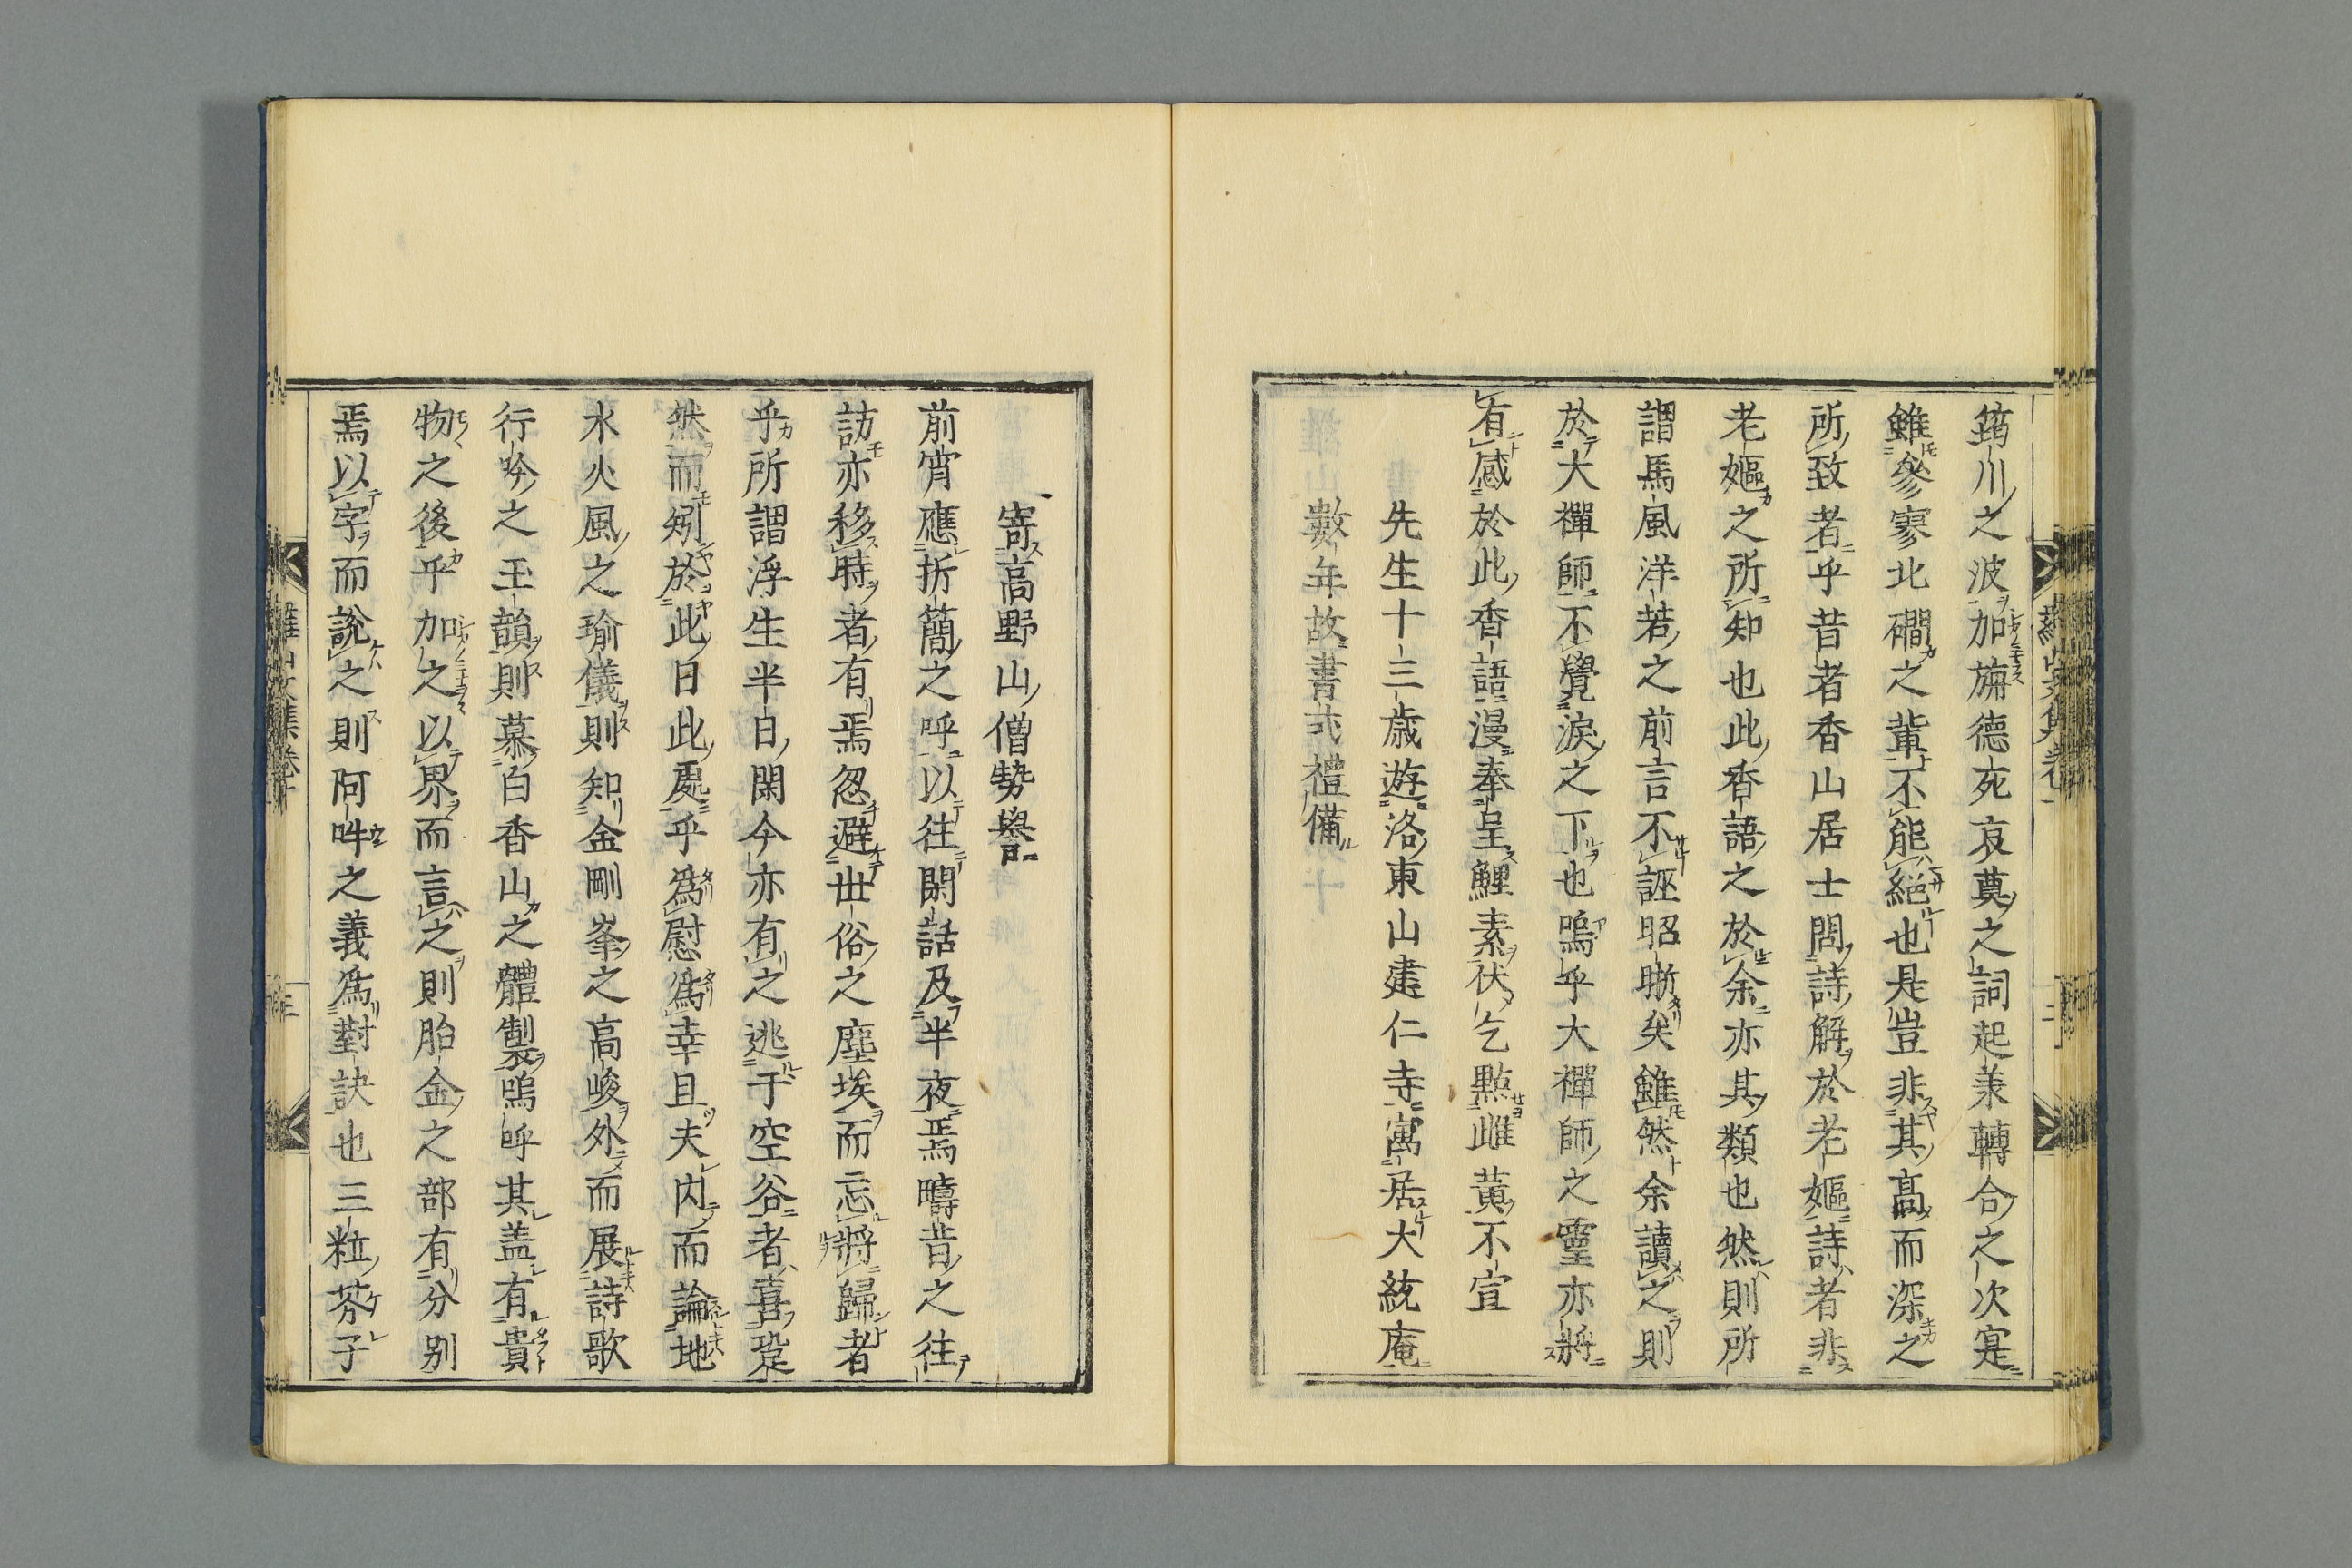 筠川之波加旃德死哀奠之詞起兼轉合之次寔
雖參寥北礀之輩不能絕也是豈非其高而深之
所致者乎昔者香山居士問詩解於老嫗詩者非
老嫗之所知也此香語之於余亦其類也然則所
謂馬風洋若之前言不誣昭晰矣雖然余讀之則
於大禪師不覺淚之下也嗚乎大禪師之靈亦將
有感於此香語漫奉呈鯉素伏乞點雌黃不宣
先生十三歲遊洛東山建仁寺寓居大統庵
數年故書式禮備
寄高野山僧勢譽
前宵應折簡之呼以往閑話及半夜焉疇昔之往
訪亦移時者有焉忽避世俗之塵埃而忘將歸者
乎所謂浮生半日閑今亦有之逃于空谷者喜跫
然而矧於此日此處乎為慰為幸且夫內而論地
水火風之瑜儀則知金剛峯之高峻外而展詩歌
行吟之玉韻則慕白香山之體製嗚呼其盖有貴
物之後乎加之以界而言之則胎金之部有分別
焉以字而說之則阿吽之義為對訣也三粒芥子